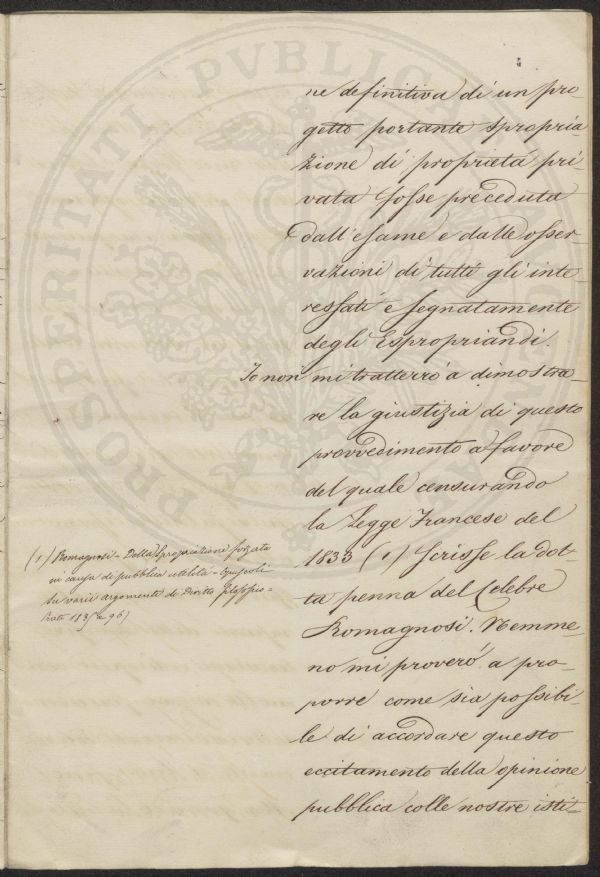 ne definitiva di un pro-
getto portante spropria-
zione di proprietà pri-
vata fosse preceduta
dall'esame e dalle osser-
vazioni di tutti gli inte-
ressati e segnatamente
degli Espropriandi.
Io non mi tratterrò a dimostra-
re la giustizia di questo
provvedimento a favore
del quale censurando
la Legge Francese del
1833 (1) scrisse la dot-
ta penna del Celebre
Romagnosi. Nemme-
no mi proverò a pro-
porre come sia possibi-
le di accordare questo
eccitamento della opinione
pubblica colle nostre isti-
(1) Romagnosi - Della Spropriazione forzata
in causa di pubblica utilità - Opuscoli
su varii argomenti di Diritto filosofico -
PROSPERITATI PUBLICAE